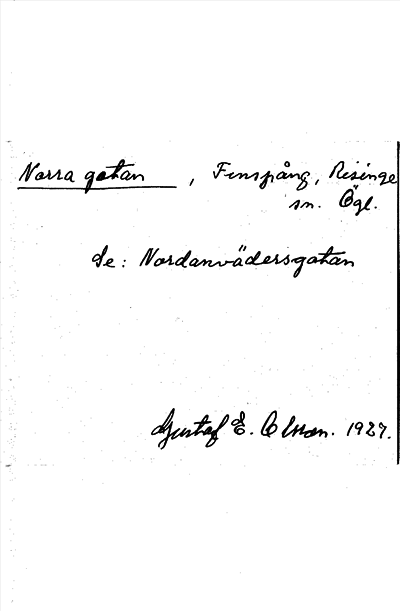 Norra gatan, Finspång, Risinge
sn. Ögl.
Se: Nordanvädersgatan
Gustaf E. Olsson. 1927.